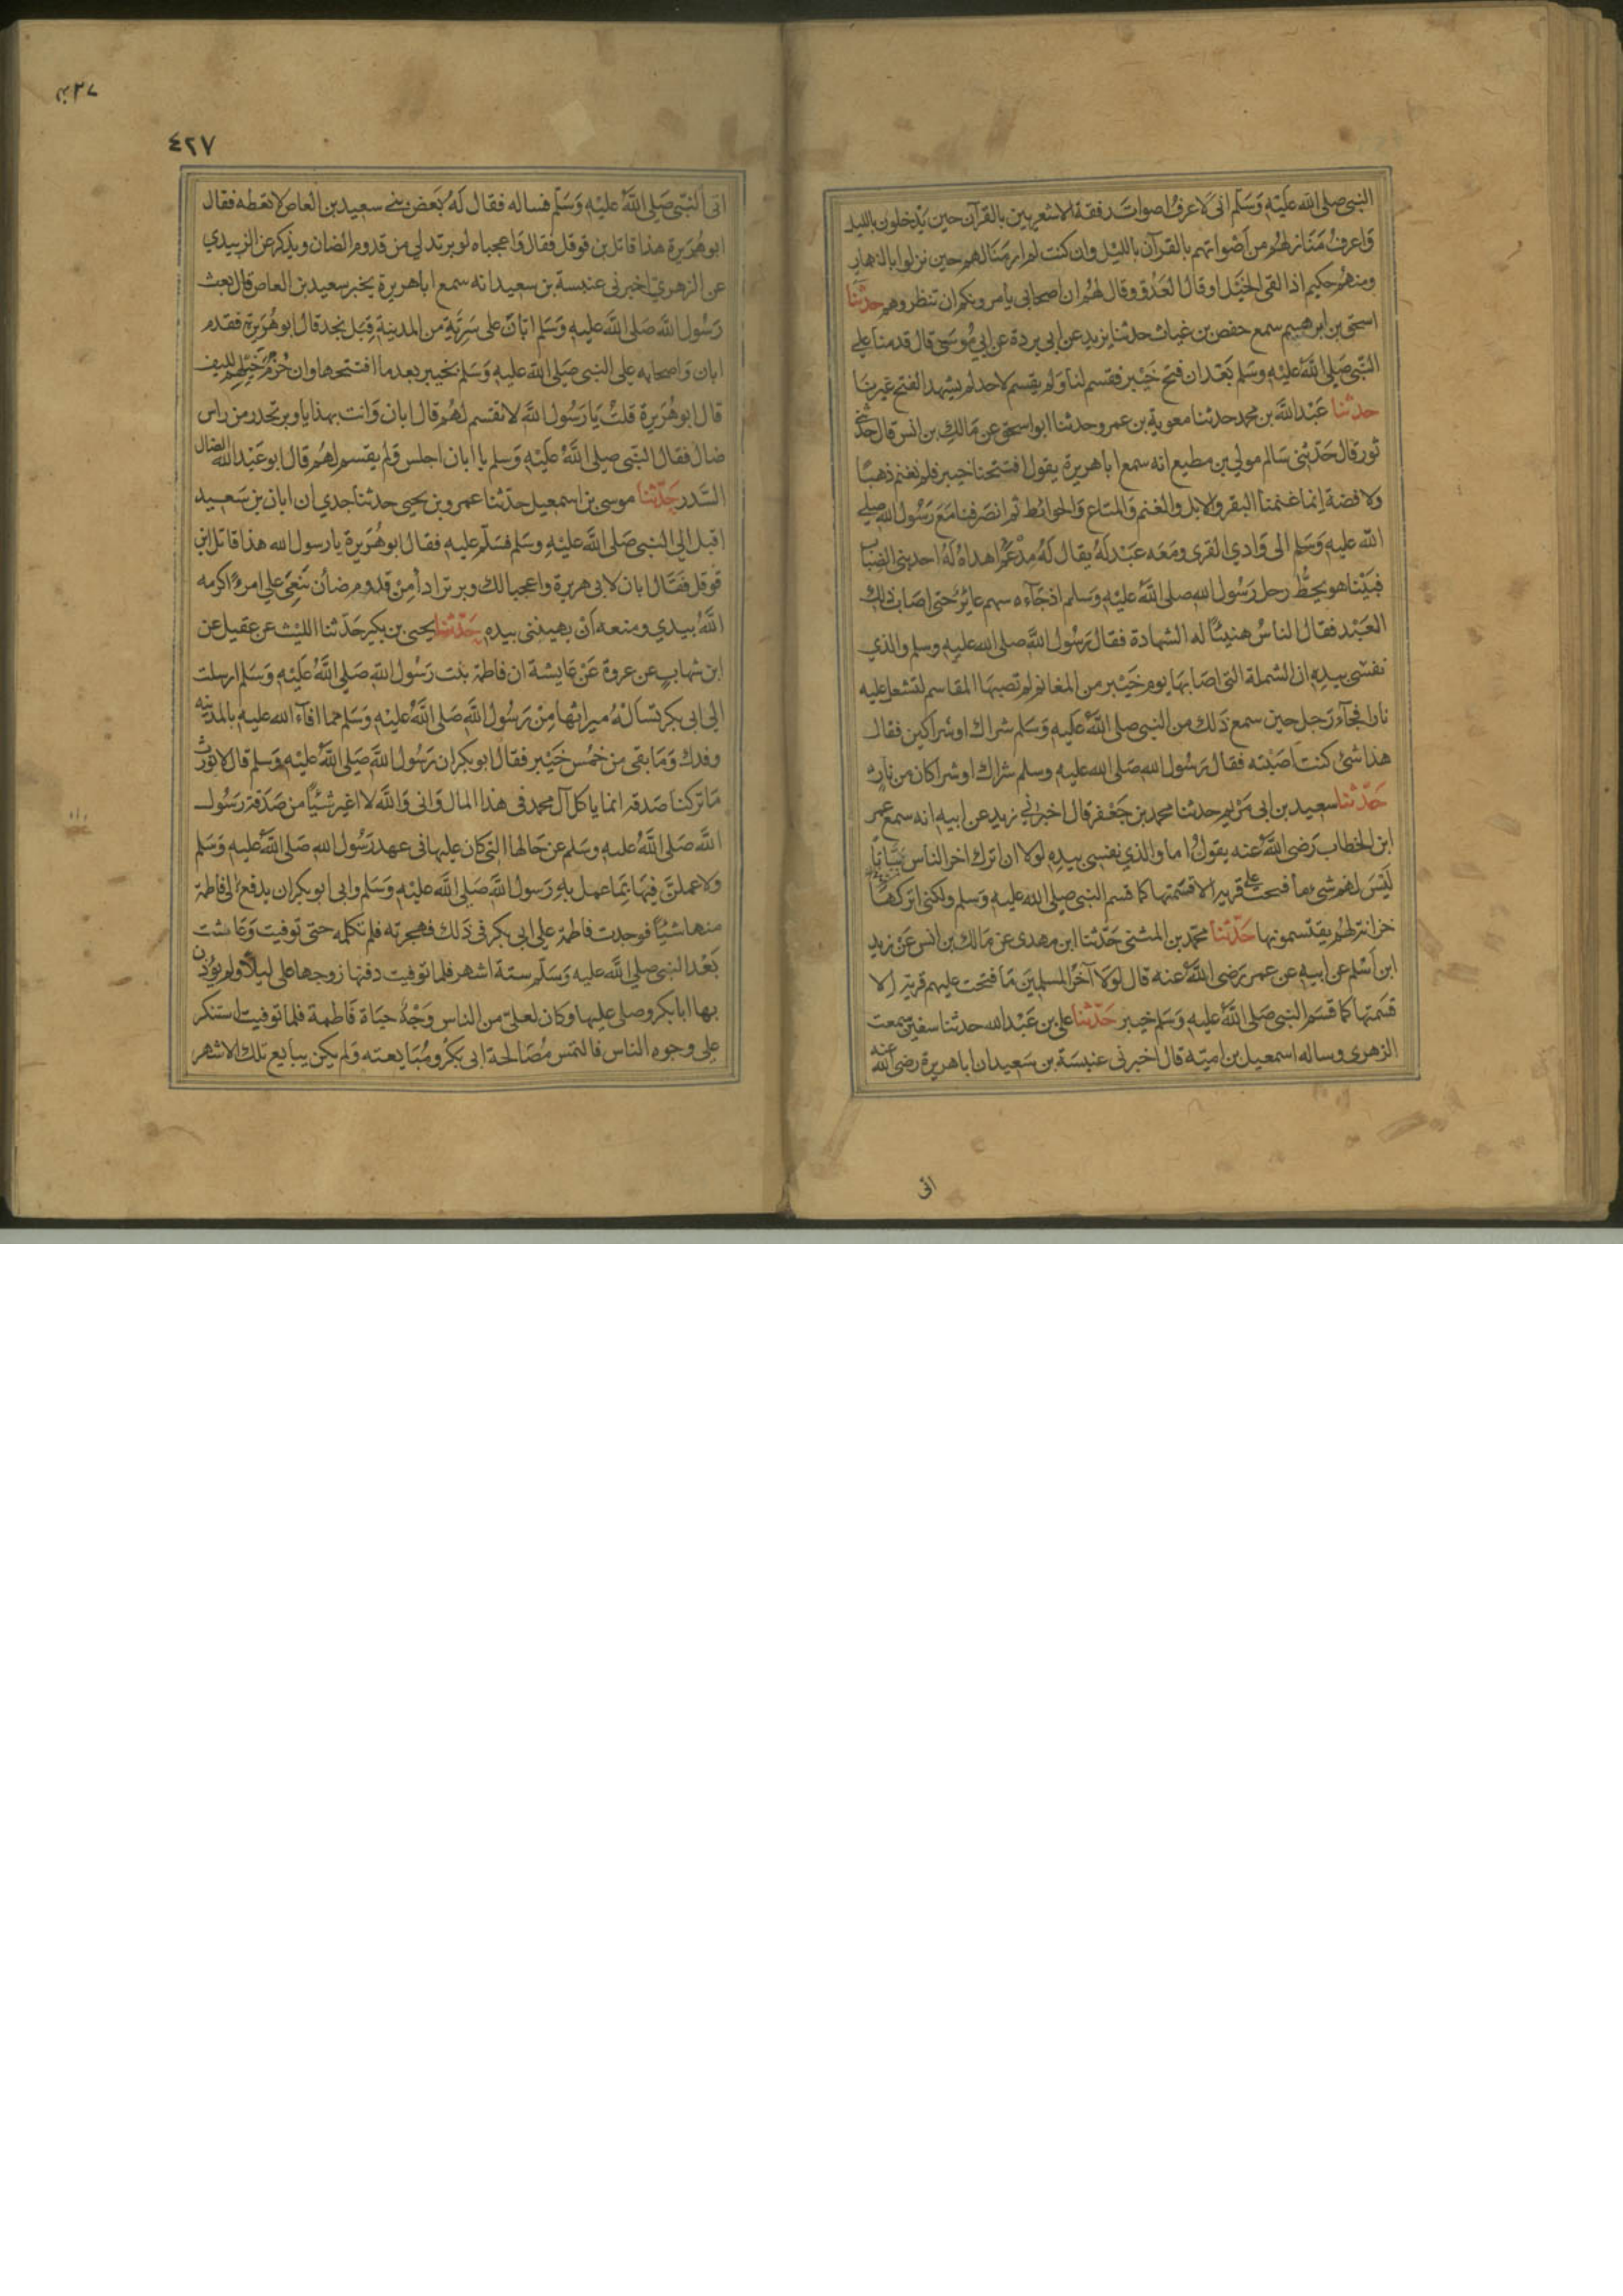 النبى صلى الله عليه وسلم انى لاعرف اصوات رفقة الاشعريين بالقرآن حين يدخلون بالليل
واعرف منازلهم من اصواتهم بالقرآن بالليل وان كنت لم ار منازلهم حين نزلوا بالنهار
ومنهم حكيم اذا لقى الخيل او قال العدو وقال لهم ان اصحابى يامرونكم ان تنظروهم حدثنا
اسحق بن ابرهيم سمع حفص بن غياث حدثنا يزيد عن ابى بردة عن ابي موسى قال قدمنا على
النبى صلى الله عليه وسلم بعد ان فتح خيبر فقسم لنا ولم يقسم لاحد لم يشهد الفتح غيرنا
حدثنا عبد الله بن محمد حدثنا معوية بن عمرو حدثنا ابو اسحق عن مالك بن انس قال حدثنى
ثور قال حدثنى سالم مولي بن مطيع انه سمع ابا هريرة يقول افتتحنا خيبر فلم نغنم ذهبا
ولا فضة انما غنمنا البقر والابل والغنم والمتاع والحوائط ثم انصرفنا مع رسول الله صلى
الله عليه وسلم الى وادي القرى ومعه عبد له يقال له مدعم اهداه له احد بنى الضباب
فبينا هو يحط رحل رسول الله صلى الله عليه وسلم اذ جآءه سهم عائر حتى اصاب ذلك
العبد فقال الناس هنيئا له الشهادة فقال رسول الله صلى الله عليه وسلم والذي
نفسى بيده ان الشملة التى اصابها يوم خيبر من المغانم لم تصبها المقاسم لتشعل عليه
نارا فجآء رجل حين سمع ذلك من النبى صلى الله عليه وسلم شراك او شراكين فقال
هذا شئ كنت اصبته فقال رسول الله صلى الله عليه وسلم شراك او شراكان من نار
حدثنا سعيد بن ابى مريم حدثنا محمد بن جعفر قال اخبرني زيد عن ابيه انه سمع عمر
ابن الخطاب رضى الله عنه يقول اما والذي نفسى بيده لولا ان اترك اخر الناس ببانا
ليس لهم شئ ما فتحت على قرية الا قسمتها كما قسم النبى صلى الله عليه وسلم ولكنى اتركها
خزانة لهم يقتسمونها حدثنا محمد بن المثنى حدثنا ابن مهدى عن مالك بن انس عن زيد
ابن اسلم عن ابيه عن عمر رضى الله عنه قال لولا آخر المسلمين ما فتحت عليهم قرية الا
قسمتها كما قسم النبى صلى الله عليه وسلم خيبر حدثنا على بن عبد الله حدثنا سفين سمعت
الزهرى وساله اسمعيل بن امية قال اخبرنى عنبسة بن سعيد ان ابا هريرة رضى الله عنه
اتى
٤٢٧
اتى النبى صلى الله عليه وسلم فساله فقال له بعض بنى سعيد بن العاص لا تعطه فقال
ابو هريرة هذا قاتل بن قوقل فقال واعجباه لوبر تدلى من قدوم الضان ويذكر عن الزبيدي
عن الزهري اخبرنى عنبسة بن سعيد انه سمع ابا هريرة يخبر سعيد بن العاص قال بعث
رسول الله صلى الله عليه وسلم ابان على سرية من المدينة قبل نجد قال ابو هريرة فقدم
ابان واصحابه على النبى صلى الله عليه وسلم بخيبر بعد ما افتتحوها وان حزم خيلهم لليف
قال ابو هريرة قلت يا رسول الله لا تقسم لهم قال ابان وانت بهذا يا وبر تحدر من راس
ضال فقال النبى صلى الله عليه وسلم يا ابان اجلس ولم يقسم لهم قال ابو عبد الله الضال
السدر حدثنا موسى بن اسمعيل حدثنا عمرو بن يحيى حدثنا جدي ان ابان بن سعيد
اقبل الى النبى صلى الله عليه وسلم فسلم عليه فقال ابو هريرة يا رسول الله هذا قاتل ابن
قوقل فقال ابان لابى هريرة واعجبا لك وبر تدادأ من قدوم ضأن تنعى على امرءا اكرمه
الله بيدي ومنعه ان يهيننى بيده حدثنا يحيى بن بكير حدثنا الليث عن عقيل عن
ابن شهاب عن عروة عن عايشة ان فاطمة بنت رسول الله صلى الله عليه وسلم ارسلت
الى ابى بكر تساله ميراثها من رسول الله صلى الله عليه وسلم مما افآء الله عليه بالمدينه
وفدك وما بقى من خمس خيبر فقال ابو بكر ان رسول الله صلى الله عليه وسلم قال لا نورث
ما تركنا صدقة انما ياكل آل محمد فى هذا المال وانى والله لا اغير شيئا من صدقة رسول
الله صلى الله عليه وسلم عن حالها التى كان عليها فى عهد رسول الله صلى الله عليه وسلم
ولاعملن فيها بما عمل به رسول الله صلى الله عليه وسلم وابى ابو بكر ان يدفع الى فاطمة
منها شيئا فوجدت فاطمة على ابى بكر فى ذلك فهجرته فلم تكلمه حتى توفيت وعاشت
بعد النبى صلى الله عليه وسلم ستة اشهر فلما توفيت دفنها زوجها على ليلا ولم يؤذن
بها ابا بكر وصلى عليها وكان لعلى من الناس وجه حياة فاطمة فلما توفيت استنكر
على وجوه الناس فالتمس مصالحة ابى بكر ومبايعته ولم يكن يبايع تلك الاشهر